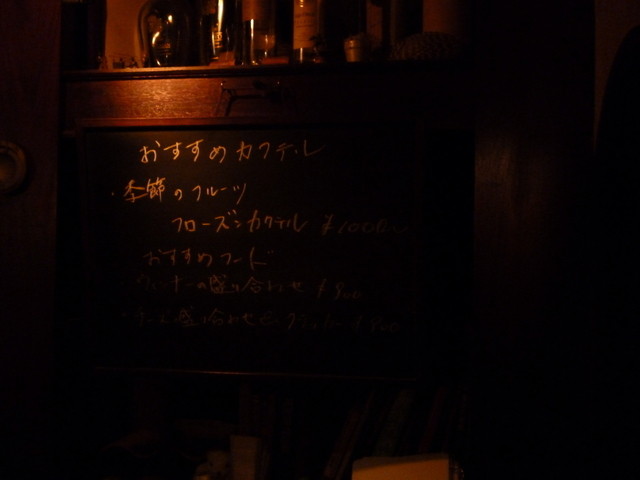 おすすめカクテル
・季節のフルーツ
フローズンカクテル ¥1000
おすすめフード
・ウィンナーの盛り合わせ ¥900
盛り合わせ